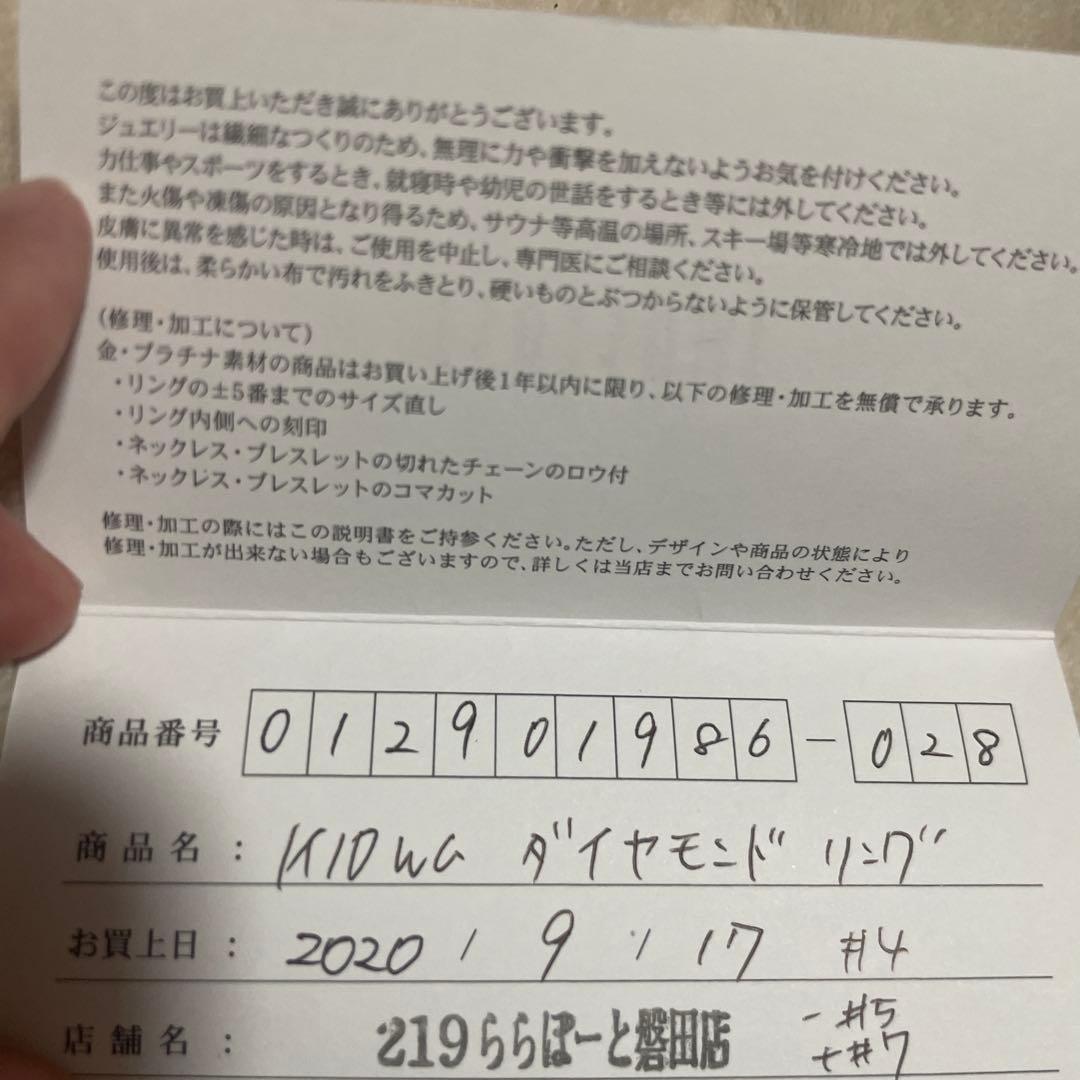 この度はお買上いただき誠にありがとうございます。
ジュエリーは繊細なつくりのため、無理に力や衝撃を加えないようお気を付けください。
力仕事やスポーツをするとき、就寝時や幼児の世話をするとき等には外してください。
また火傷や凍傷の原因となり得るため、サウナ等高温の場所、スキー場等寒冷地では外してください。
皮膚に異常を感じた時は、ご使用を中止し、専門医にご相談ください。
使用後は、柔らかい布で汚れをふきとり、硬いものとぶつからないように保管してください。
(修理・加工について)
金・プラチナ素材の商品はお買い上げ後1年以内に限り、以下の修理・加工を無償で承ります。
・リングの±5番までのサイズ直し
・リング内側への刻印
・ネックレス・ブレスレットの切れたチェーンのロウ付
・ネックレス・ブレスレットのコマカット
修理・加工の際にはこの説明書をご持参ください。ただし、デザインや商品の状態により
修理・加工が出来ない場合もございますので、詳しくは当店までお問い合わせください。
商品番号 012901986-028
商品名: K10WG ダイヤモンド リング
お買上日: 2020 / 9 / 17 #4
店舗名: 219ららぽーと磐田店 -#5
+#7